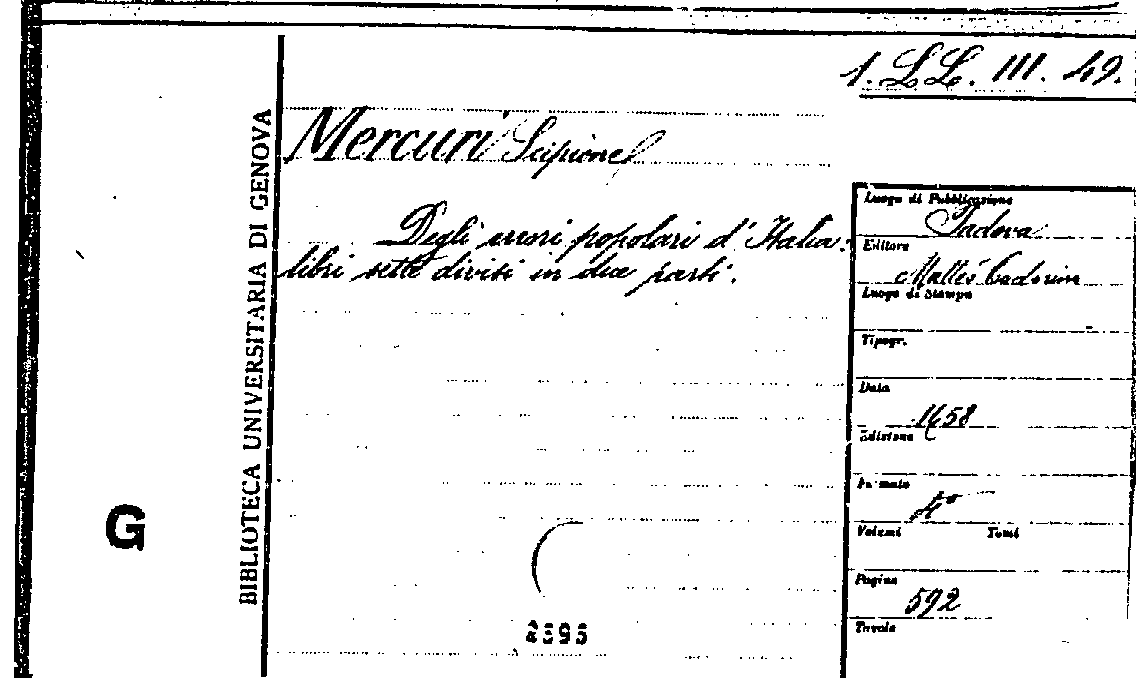 1. L L. III. 49.
BIBLIOTECA UNIVERSITARIA DI GENOVA
Mercuri Scipione
Degli errori popolari d'Italia.
libri sette divisi in due parti.
Luogo di Pubblicazione
Padova
Editore
Matteo Cadorin
Luogo di Stampa
Tipogr.
Data
1658
Edizione
Formato
4°
Volumi Tomi
Pagine
592
Tavole
G